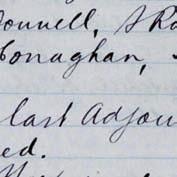 onnell,
Conaghan,
last Adjou
ed.